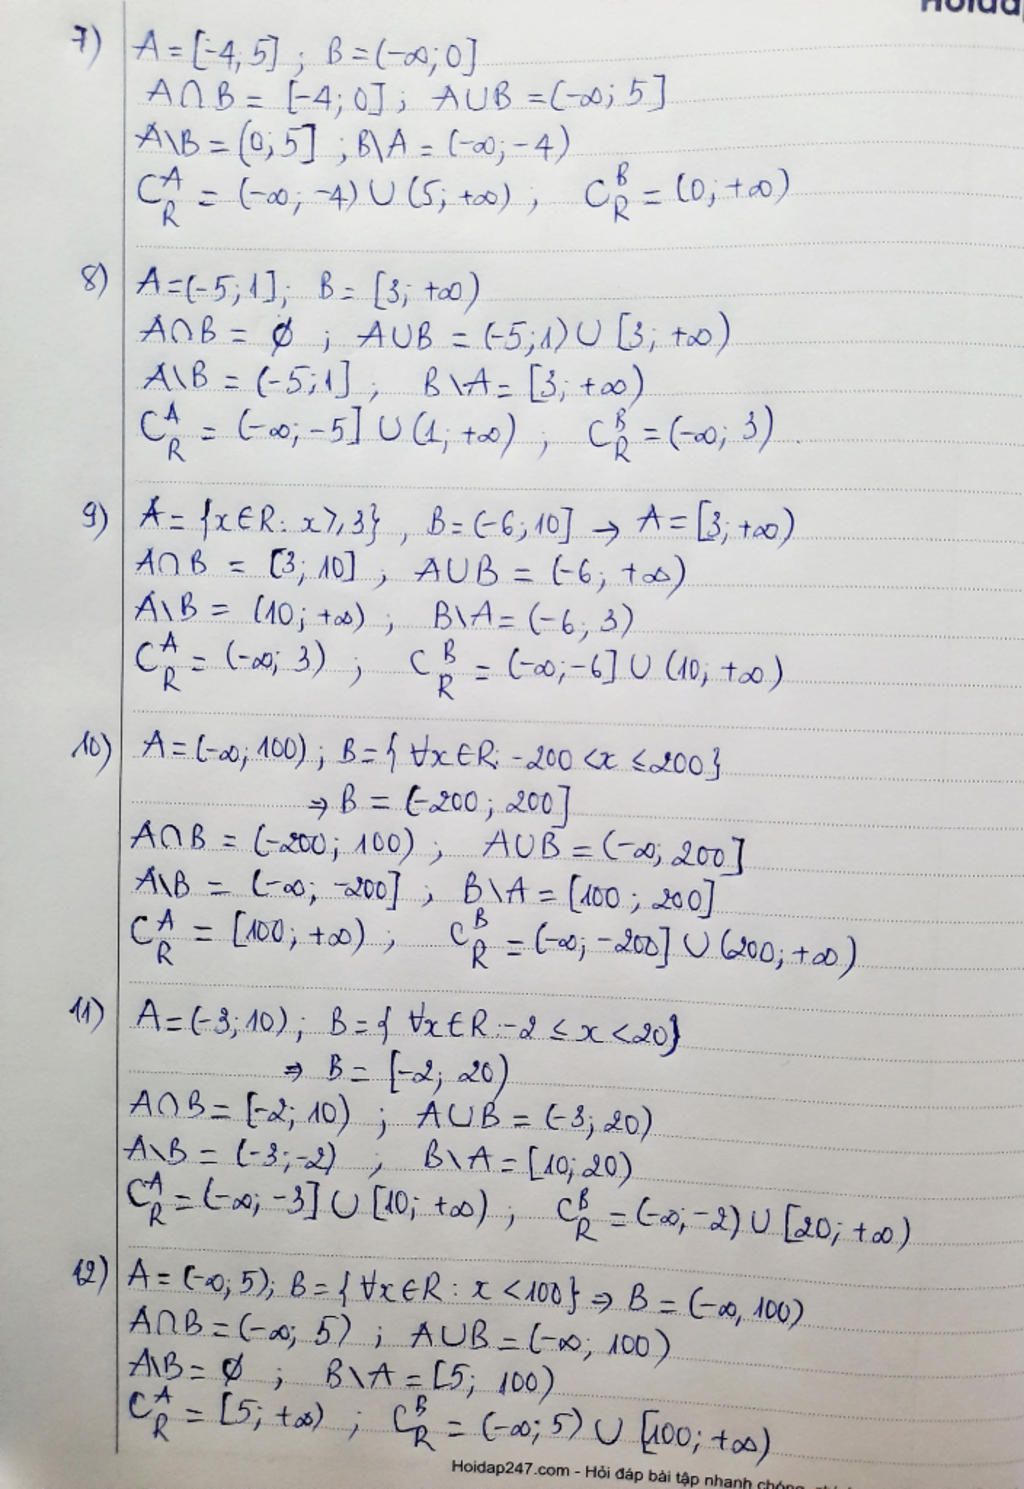 Hoida
7) A = [-4; 5] ; B = (-∞; 0]
A∩B = [-4; 0] ; A∪B = (-∞; 5]
A\B = (0; 5] ; B\A = (-∞; -4)
C_R^A = (-∞; -4) ∪ (5; +∞) ; C_R^B = (0; +∞)
8) A = (-5; 1] ; B = [3; +∞)
A∩B = ∅ ; A∪B = (-5; 1) ∪ [3; +∞)
A\B = (-5; 1] ; B\A = [3; +∞)
C_R^A = (-∞; -5] ∪ (1; +∞) ; C_R^B = (-∞; 3) .
9) A = {x∈R: x ≥ 3} , B = (-6; 10] → A = [3; +∞)
A∩B = [3; 10] , A∪B = (-6; +∞)
A\B = (10; +∞) ; B\A = (-6; 3)
C_R^A = (-∞; 3) ; C_R^B = (-∞; -6] ∪ (10; +∞)
10) A = (-∞; 100) ; B = { ∀x∈R: -200 < x ≤ 200}
⇒ B = (-200; 200]
A∩B = (-200; 100) ; A∪B = (-∞; 200]
A\B = (-∞; -200] ; B\A = [100; 200]
C_R^A = [100; +∞) ; C_R^B = (-∞; -200] ∪ (200; +∞)
11) A = (-3; 10) ; B = { ∀x∈R: -2 ≤ x < 20}
⇒ B = [-2; 20)
A∩B = [-2; 10) ; A∪B = (-3; 20)
A\B = (-3; -2) ; B\A = [10; 20)
C_R^A = (-∞; -3] ∪ [10; +∞) ; C_R^B = (-∞; -2) ∪ [20; +∞)
12) A = (-∞; 5) ; B = { ∀x∈R: x < 100} ⇒ B = (-∞, 100)
A∩B = (-∞; 5) ; A∪B = (-∞; 100)
A\B = ∅ ; B\A = [5; 100)
C_R^A = [5; +∞) ; C_R^B = (-∞; 5) ∪ [100; +∞)
Hoidap247.com - Hỏi đáp bài tập nhanh chóng